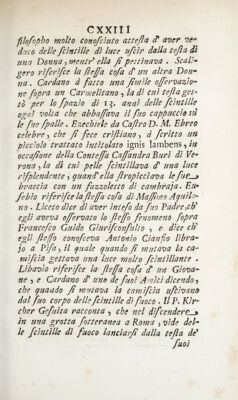 CXXIII
filosopho molto conosciuto attesta d' aver ve-
duto delle scintille di luce uscir dalla testa di
una Donna, mentr' ella si pettinava. Scali-
gero riferisce la stessa cosa d' un altra Don-
na. Cardano à fatto una simile osservazio-
ne sopra un Carmelitano, la di cui testa get-
tò per lo spazio di 13. anni delle scintille
ogni volta che abbassava il suo cappuccio su
le sue spalle. Ezechiele da Castro D. M. Ebreo
celebre, che si fece cristiano, à scritto un
picciolo trattato intitolato ignis lambens, in
occasione della Contessa Cassandra Buri di Ve-
rona, la di cui pelle scintillava d' una luce
risplendente, quand' ella stropicciava le sue
braccia con un fuzzoletto di cambraja. Eu-
sebio riferisce la stessa cosa di Massimo Aquili-
no. Liceto dice di aver inteso da suo Padre, ch'
egli aveva osservato lo stesso fenomeno sopra
Francesco Guido Giurisconsulto, e dice ch'
egli stesso conosceva Antonio Cianfio libra-
jo a Pisa, il quale quando si mutava la ca-
miscia gettava una luce molto scintillante.
Libavio riferisce la stessa cosa d' un Giova-
ne, e Cardano d' uno de suoi Amici dicendo,
che quando si mutava la camiscia uscivano
dal suo corpo delle scintille di fuoco. Il P. Kir-
cher Gesuita racconta, che nel discendere
in una grotta sotteranea a Roma, vide del-
le scintille di fuoco lanciarsi dalla testa de'
suoi